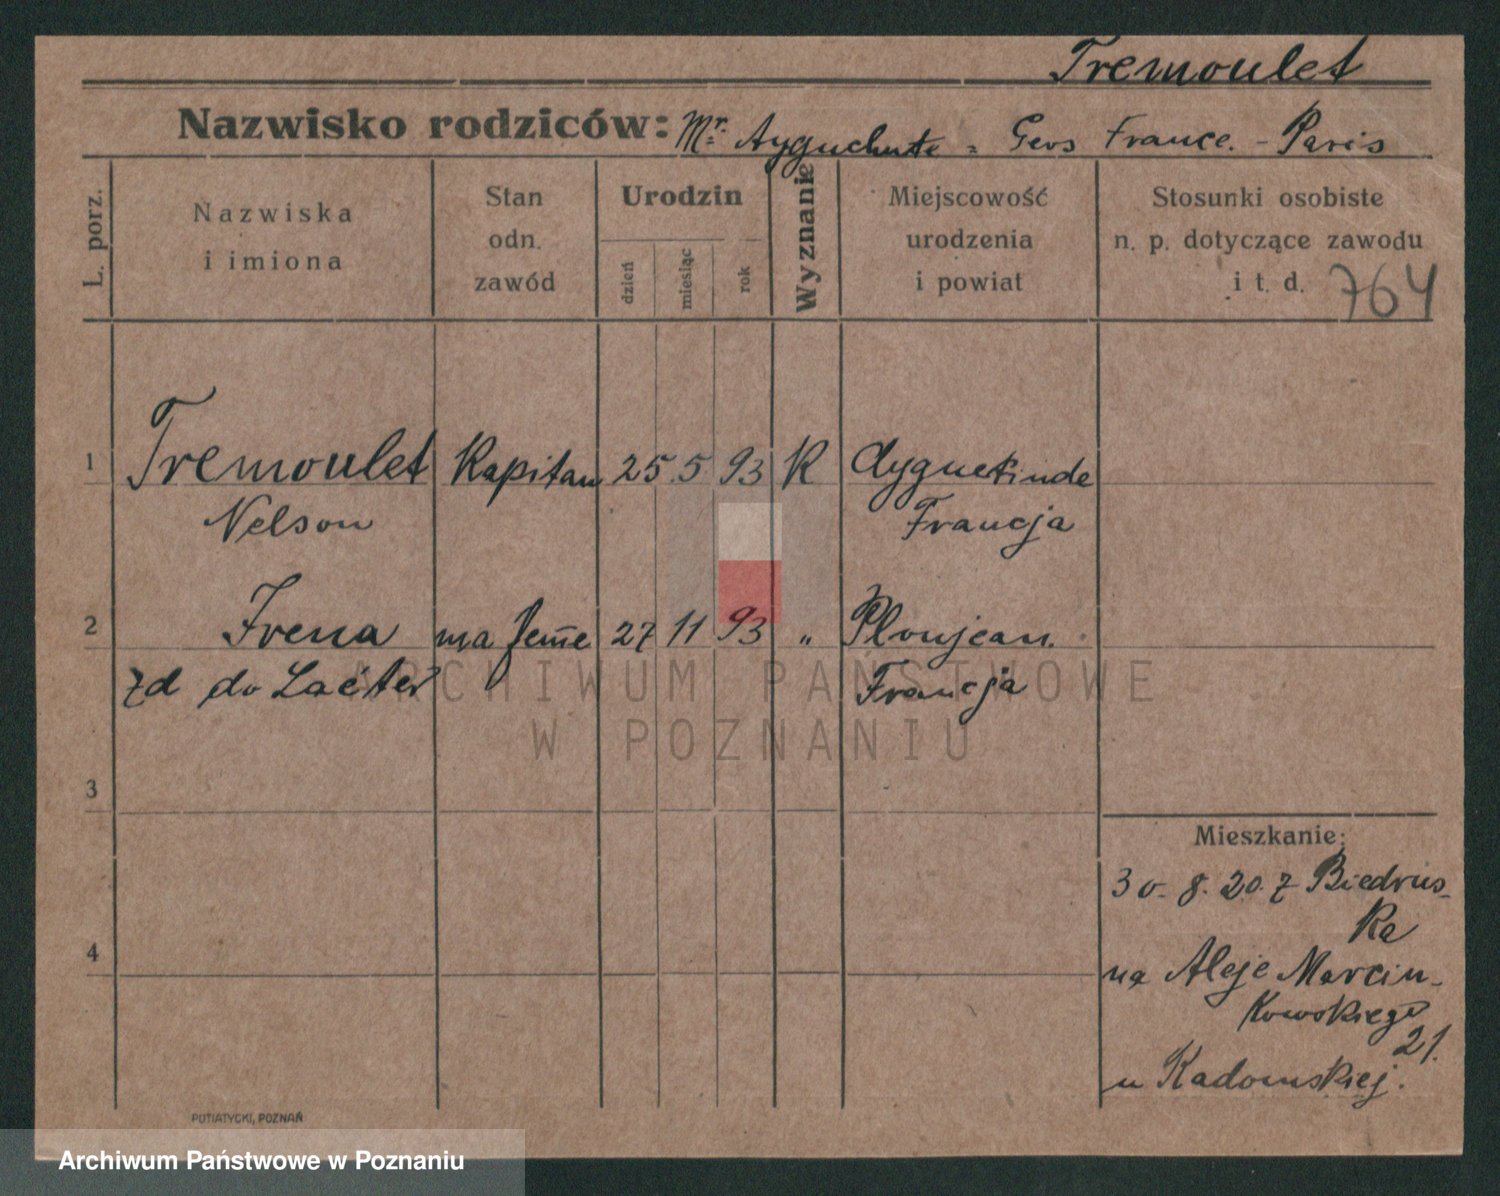 Tremoulet
Nazwisko rodziców: Mr. Ayguchute = Gers France. - Paris
L. porz.
Nazwiska
i imiona
Stan
odn.
zawód
Urodzin
dzień
miesiąc
rok
Wyznanie
Miejscowość
urodzenia
i powiat
Stosunki osobiste
n. p. dotyczące zawodu
i t. d.
764
1 Tremoulet Kapitan 25 5 93 K Ayguetinde
Nelson Francja
2 Irena ma feme 27 11 93 " Ploujean.
zd do Francja
3
4
Mieszkanie:
30. 8. 20. z Biedrus-
ka
na Aleje Marcin-
kowskiego
21.
u Kadomskiej.
PUTIATYCKI, POZNAŃ
ARCHIWUM PAŃSTWOWE
W POZNANIU
Archiwum Państwowe w Poznaniu